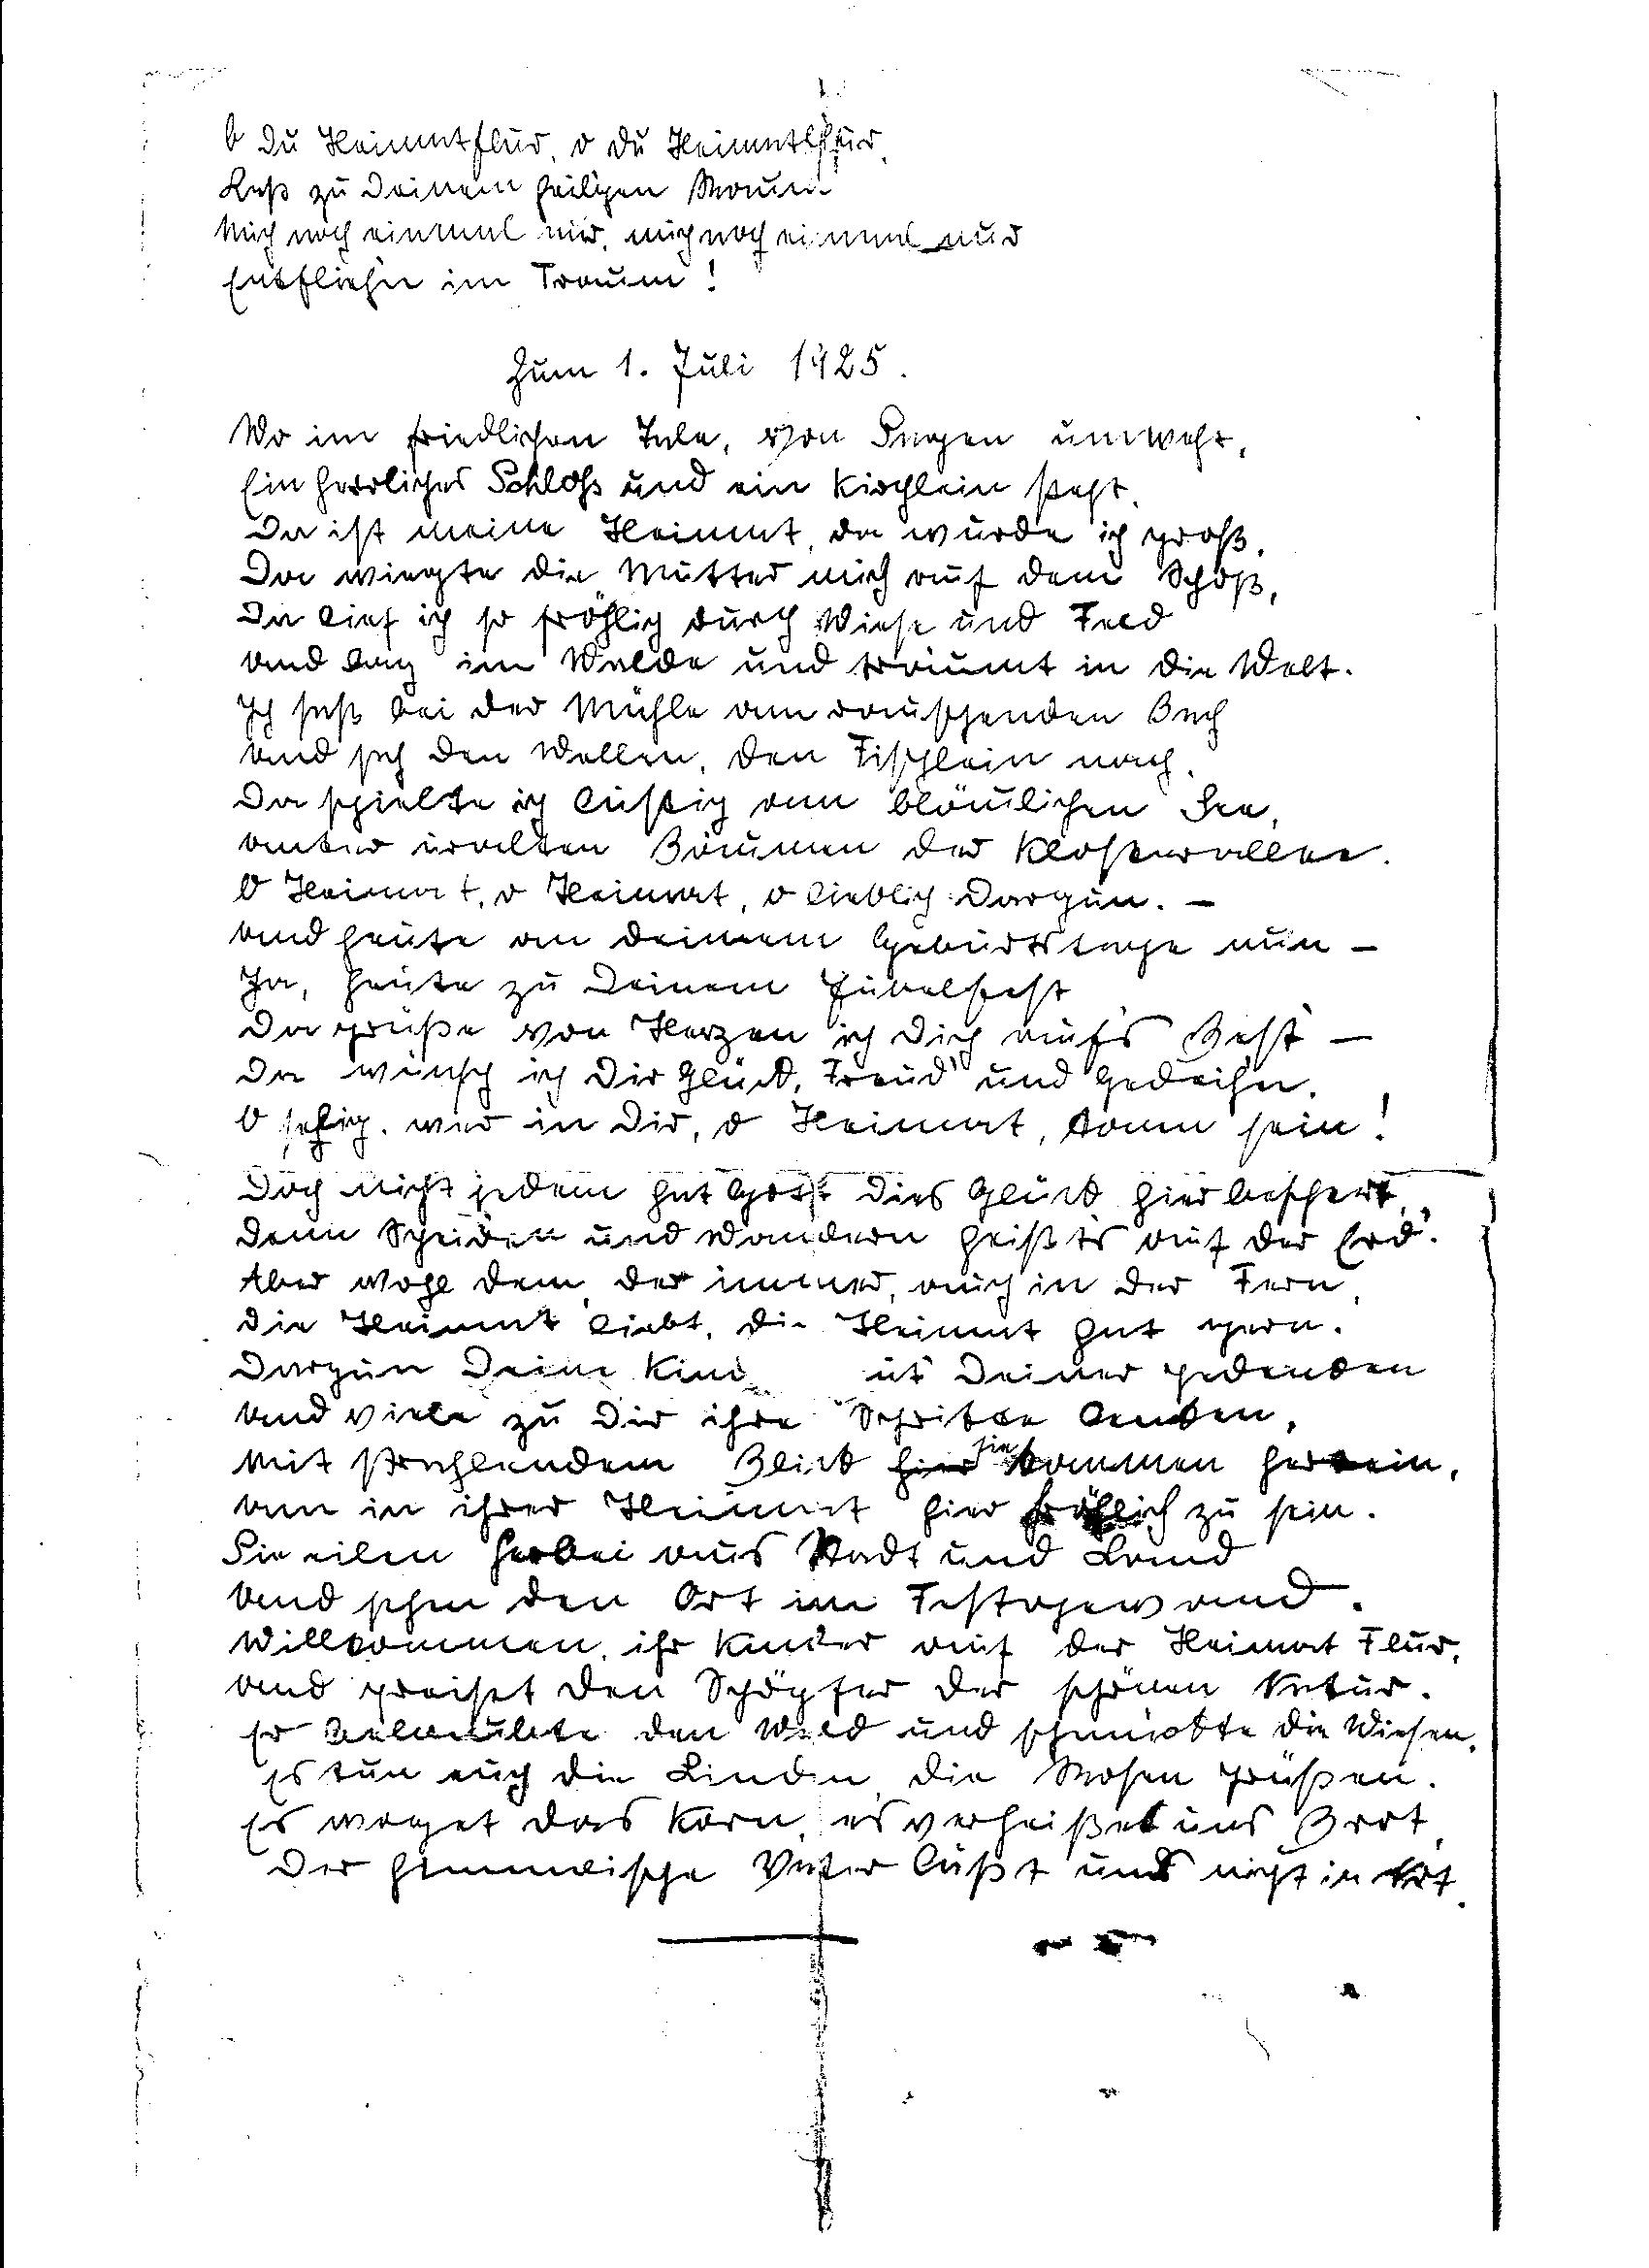 O du Heimatflur, o du Heimatflur,
Laß zu Deinem heiligen Raum
Mich noch einmal nur, mich noch einmal nur
Entfliehn im Traum!
Zum 1. Juli 1925.
Wo im friedlichen Tale, von Sagen umweht,
Ein herrliches Schloß und ein Kirchlein steht,
Da ist meine Heimat, da wurde ich groß,
Da wiegte die Mutter mich auf dem Schoß,
Da lief ich so fröhlich durch Wiese und Feld
und lag im Walde und träumt in die Welt.
Ich saß bei der Mühle am rauschenden Bach
und sah den Wellen, den Fischlein nach.
Da spielte ich lustig am bläulichen See,
unter uralten Bäumen der Klosterallee.
O Heimat, o Heimat, o lieblich Dargun. –
und heute an deinem Geburtstage nun –
Ja, heute zu Deinem Jubelfest
Da grüße von Herzen ich Dich aufs Best –
da wünsch ich Dir Glück, Freud' und Gedeihn.
O selig, wer in Dir, o Heimat, kann sein!
Doch nicht jedem hat Gott dies Glück hier beschert,
denn Scheiden und Wandern heißt's auf der Erd'.
Aber wohl dem, der immer, auch in der Fern,
die Heimat liebt, die Heimat hat gern.
Dargun Deine Kind ut Deiner gedenken
und viele zu Dir ihre Schritte lenken,
Mit strahlendem Blick sie kommen herein,
um in ihrer Heimat hier fröhlich zu sein.
Sie eilen herbei aus Stadt und Land
und sehn den Ort im Festgewand.
Willkommen, ihr Kinder auf der Heimat Flur,
und preiset den Schöpfer der schönen Natur.
Er belaubte den Wald und schmückte die Wiesen,
Es tun euch die Linden, die Rosen grüßen.
Es woget das Korn, es verheißet uns Brot,
Der himmlische Vater läßt uns nicht in Not.